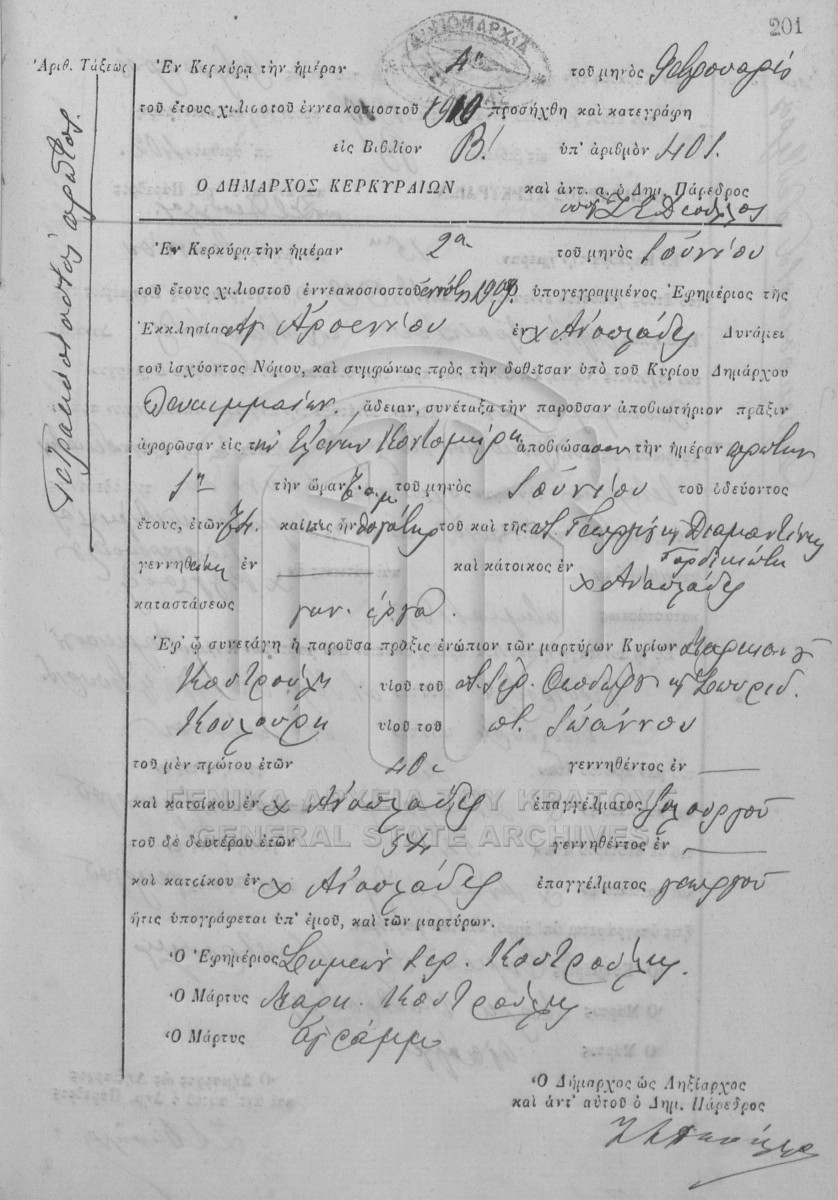 201
ΛΗΞΙΑΡΧΙΑ
Ἀριθ. Τάξεως
Τετρακοσιοστὸς πρῶτος.
Ἐν Κερκύρᾳ τὴν ἡμέραν 4η τοῦ μηνὸς Φεβρουαρίου
τοῦ ἔτους χιλιοστοῦ ἐννεακοσιοστοῦ 1910 προσήχθη καὶ κατεγράφη
εἰς Βιβλίον Β! ὑπ' ἀριθμὸν 401.
Ο ΔΗΜΑΡΧΟΣ ΚΕΡΚΥΡΑΙΩΝ καὶ ἀντ. α. ὁ Δημ. Πάρεδρος
Ἐν Κερκύρᾳ τὴν ἡμέραν 2α τοῦ μηνὸς Ἰουνίου
τοῦ ἔτους χιλιοστοῦ ἐννεακοσιοστοῦ ἐννάτου 1909 ὑπογεγραμμένος Ἐφημέριος τῆς
Ἐκκλησίας Ἁγ. Ἀρσενίου ἐν χ Ἀναπλάδες Δυνάμει
τοῦ ἰσχύοντος Νόμου, καὶ συμφώνως πρὸς τὴν δοθεῖσαν ὑπὸ τοῦ Κυρίου Δημάρχου
ἄδειαν, συνέταξα τὴν παροῦσαν ἀποβιωτήριον πρᾶξιν
ἀφορῶσαν εἰς τὴν Ἑλένην Κοντομάρκη ἀποβιώσασαν τὴν ἡμέραν πρώτην
1η τὴν ὥραν 7 π.μ. τοῦ μηνὸς Ἰουνίου τοῦ ὁδεύοντος
ἔτους, ἐτῶν 74 καὶ τις ἦν θυγάτηρ τοῦ καὶ τῆς π. Γεωργίου κ Διαμαντίνης
Γαρδικιώτη
γεννηθείση ἐν —— καὶ κάτοικος ἐν χ Ἀναπλάδες
καταστάσεως γυν. ἐργα.
Ἐφ' ᾧ συνετάγη ἡ παροῦσα πρᾶξις ἐνώπιον τῶν μαρτύρων Κυρίων Μάρκου
Καστρούλη υἱοῦ τοῦ π. Ἱερ. Θεοδώρου κ Σπυρίδ.
Κουλούρη υἱοῦ τοῦ π. Ἰωάννου
τοῦ μὲν πρώτου ἐτῶν 40 γεννηθέντος ἐν ——
καὶ κατοίκου ἐν χ Ἀναπλάδες ἐπαγγέλματος ξυλουργοῦ
τοῦ δὲ δευτέρου ἐτῶν 54 γεννηθέντος ἐν ——
καὶ κατοίκου ἐν χ Ἀναπλάδες ἐπαγγέλματος γεωργοῦ
ἥτις ὑπογράφεται ὑπ' ἐμοῦ, καὶ τῶν μαρτύρων.
Ὁ Ἐφημέριος Συμεὼν Ἱερ. Καστρούλης.
Ὁ Μάρτυς Μάρκ. Καστρούλης
Ὁ Μάρτυς Ἀγράμμ
Ὁ Δήμαρχος ὡς Ληξίαρχος
καὶ ἀντ' αὐτοῦ ὁ Δημ. Πάρεδρος
ΓΕΝΙΚΑ ΑΡΧΕΙΑ ΤΟΥ ΚΡΑΤΟΥΣ
GENERAL STATE ARCHIVES